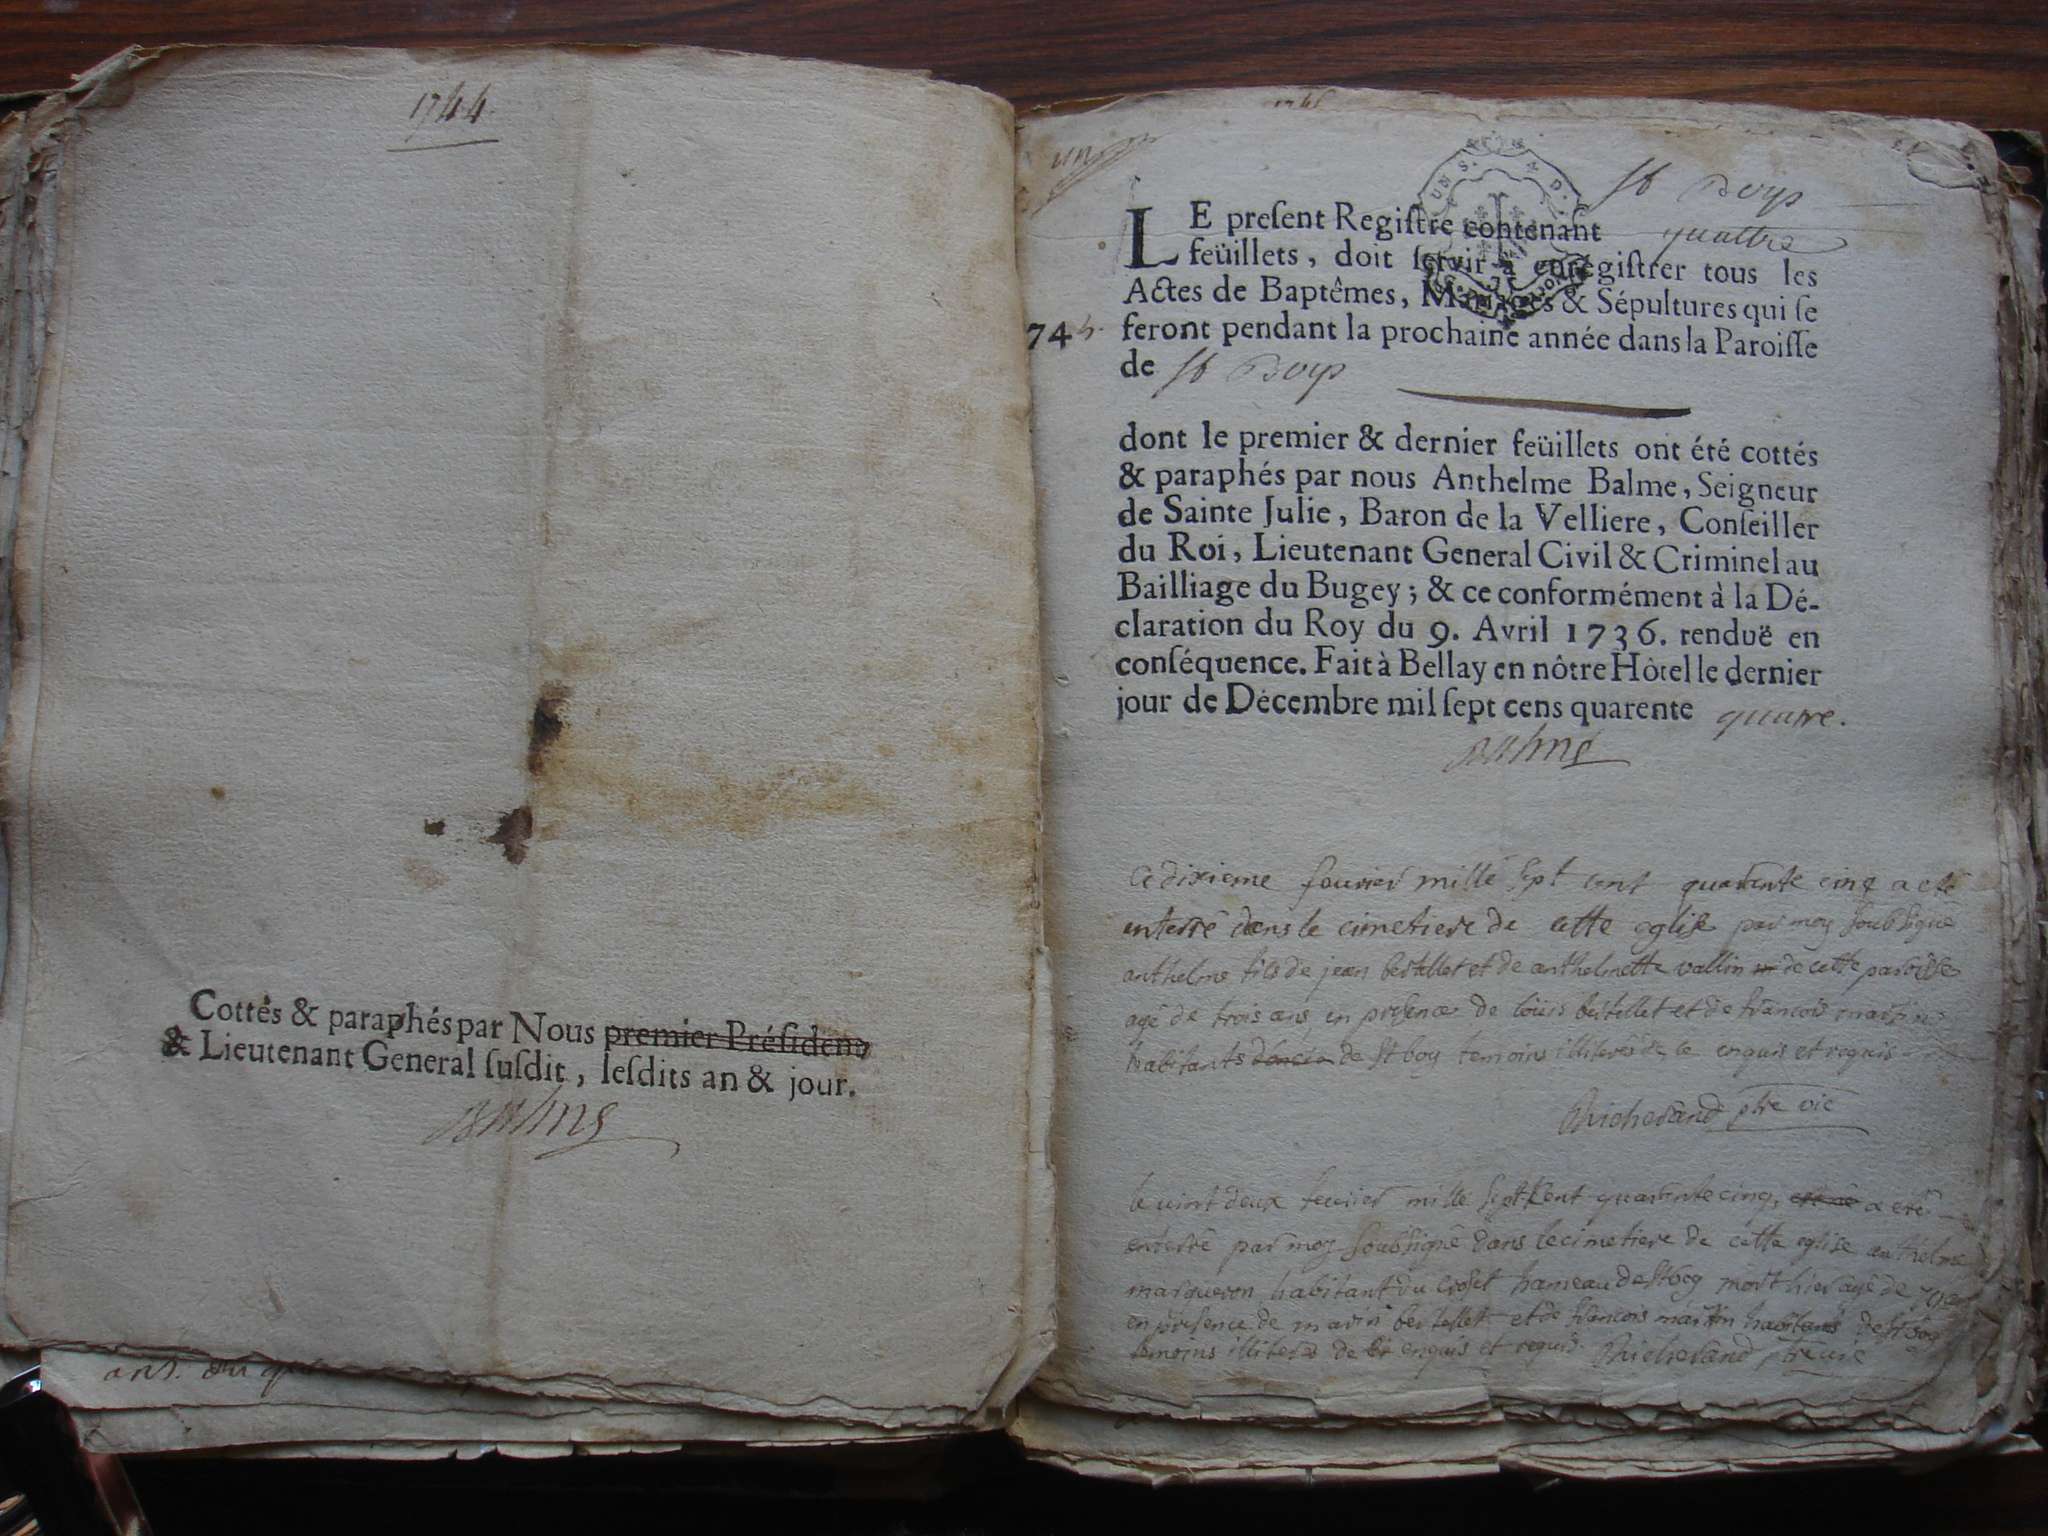 1744
Cottés & paraphés par Nous premier Président
& Lieutenant General ſuſdit, leſdits an & jour.
Balme
1745
un
St Boys
LE preſent Regiſtre contenant quattre
feüillets, doit ſervir à enrégiſtrer tous les
Actes de Baptêmes, Mariages & Sépultures qui ſe
744. feront pendant la prochaine année dans la Paroiſſe
de St Boys
dont le premier & dernier feüillets ont été cottés
& paraphés par nous Anthelme Balme, Seigneur
de Sainte Julie, Baron de la Velliere, Conſeiller
du Roi, Lieutenant General Civil & Criminel au
Bailliage du Bugey; & ce conformément à la Dé-
claration du Roy du 9. Avril 1736. renduë en
conſéquence. Fait à Bellay en nôtre Hôtel le dernier
jour de Décembre mil ſept cens quarente quatre.
Balme
Ce dixieme feurier mille sept cent quarante cinq a eté
enterré dans le cimetiere de cette eglise par moy soubsigné
anthelme fils de jean bertellet et de anthelmette vallin de cette paroisse
agé de trois ans en presence de louis bertellet et de francois martin
habitants de St boy temoins illiterés de ce enquis et requis
Richerand ptre vic
le vint deux feurier mille sept cent quarante cinq, a eté
enterré par moy soubsigné dans le cimetiere de cette eglise anthelme
marqueron habitant du croset hameau de St boy mort hier agé de
en presence de marin bertellet et de francois martin habitans de St boy
temoins illiterés de ce enquis et requis. Richerand ptre vic